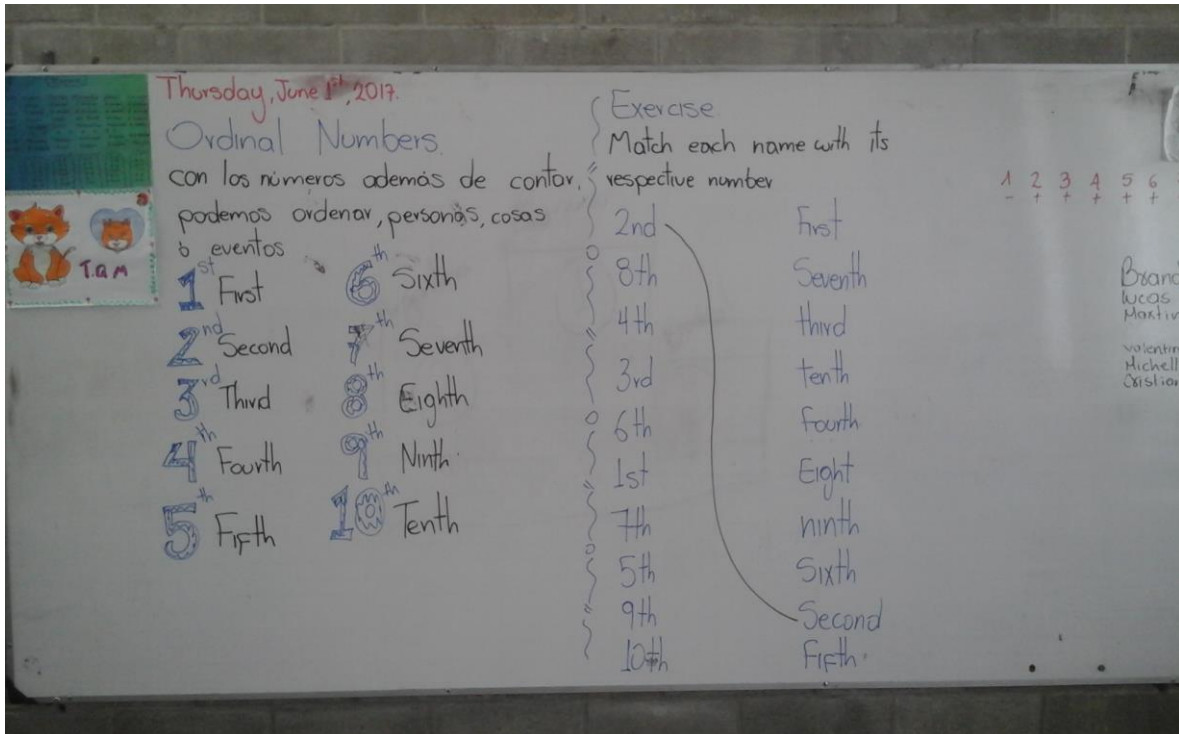 Thursday, June 1st, 2017.
Ordinal Numbers.
con los números además de contar,
podemos ordenar, personas, cosas
ó eventos
T.Q.M
1st First
2nd Second
3rd Third
4th Fourth
5th Fifth
6th Sixth
7th Seventh
8th Eighth
9th Ninth.
10th Tenth
Exercise
Match each name with its
respective number
2nd
8th
4th
3rd
6th
1st
7th
5th
9th
10th
First
Seventh
third
tenth
fourth
Eight
ninth
Sixth
Second
Fifth.
1 2 3 4 5 6
- + + + + +
Brand
Lucas
Martin
Valentin
Michell
Cristian